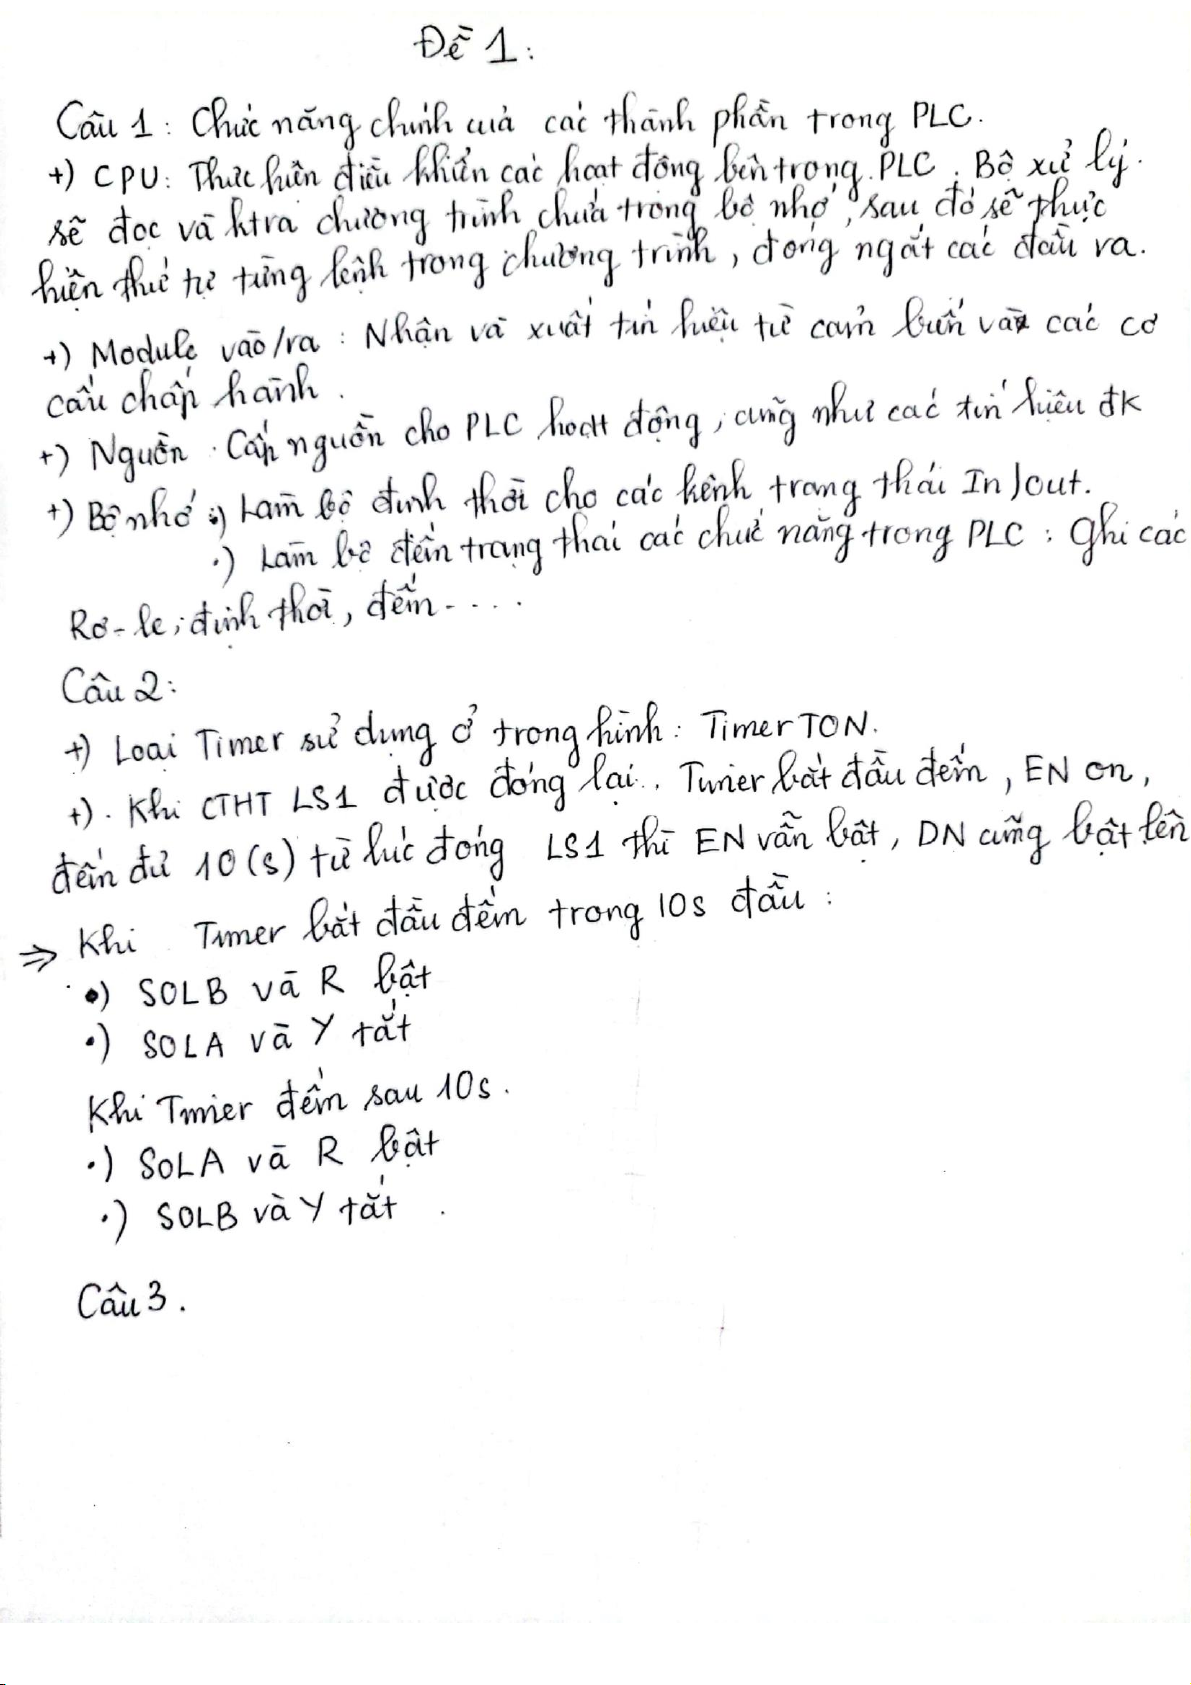 Đề 1:
Câu 1: Chức năng chính của các thành phần trong PLC.
+) CPU: Thực hiện điều khiển các hoạt động bên trong PLC. Bộ xử lý
sẽ đọc và ktra chương trình chứa trong bộ nhớ, sau đó sẽ thực
hiện thứ tự từng lệnh trong chương trình, đóng ngắt các đầu ra.
+) Module vào/ra: Nhận và xuất tín hiệu từ cảm biến và các cơ
cấu chấp hành.
+) Nguồn. Cấp nguồn cho PLC hoạt động, cũng như các tín hiệu đk
+) Bộ nhớ .) Làm bộ định thời cho các kênh trạng thái In/out.
.) Làm bộ đếm trạng thái các chức năng trong PLC: Ghi các
Rơ-le, định thời, đếm....
Câu 2:
+) Loại Timer sử dụng ở trong hình: Timer TON.
+). Khi CTHT LS1 được đóng lại. Timer bắt đầu đếm, EN on,
đếm đủ 10(s) từ lúc đóng LS1 thì EN vẫn bật, DN cũng bật lên
=> Khi Timer bắt đầu đếm trong 10s đầu:
.) SOLB và R bật
.) SOLA và Y tắt
Khi Timer đếm sau 10s.
.) SOLA và R bật
.) SOLB và Y tắt.
Câu 3.